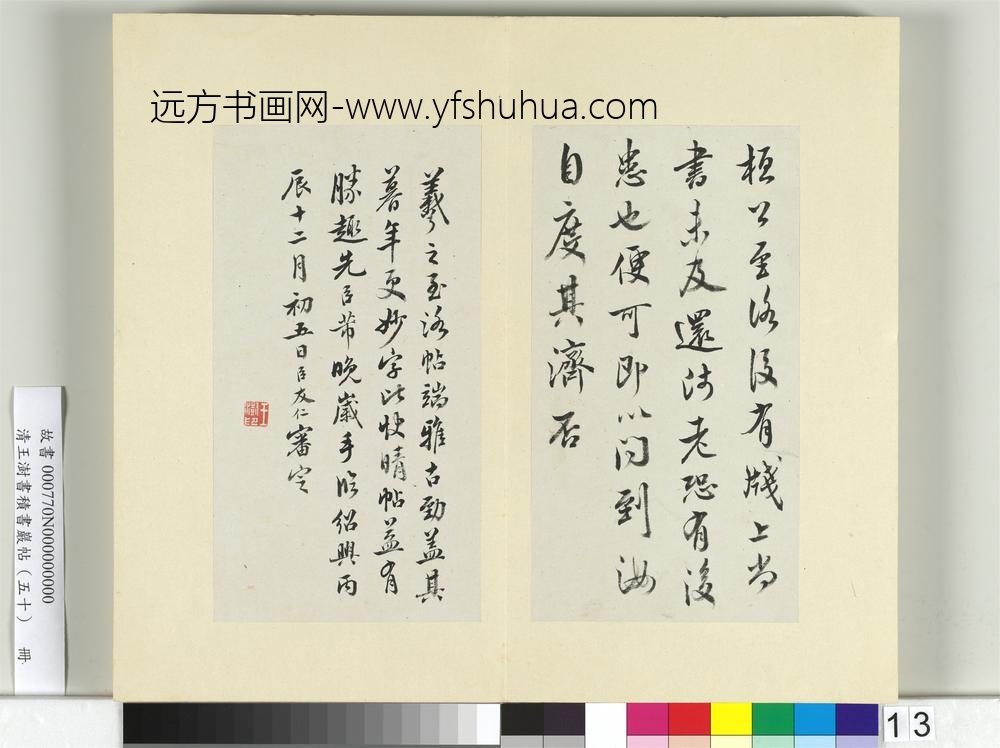 远方书画网-www.yfshuhua.com
桓公至洛後有牋上尚
書未及還沛老恐有後
患也便可即以问到汝
自度其濟否
羲之至洛帖端雅古勁蓋其
暮年更妙字比快晴帖益有
勝趣先臣芾晚歲手臨紹興丙
辰十二月初五日臣友仁審定
故書 000770N000000000
清王澍書積書巖帖（五十） 冊
13